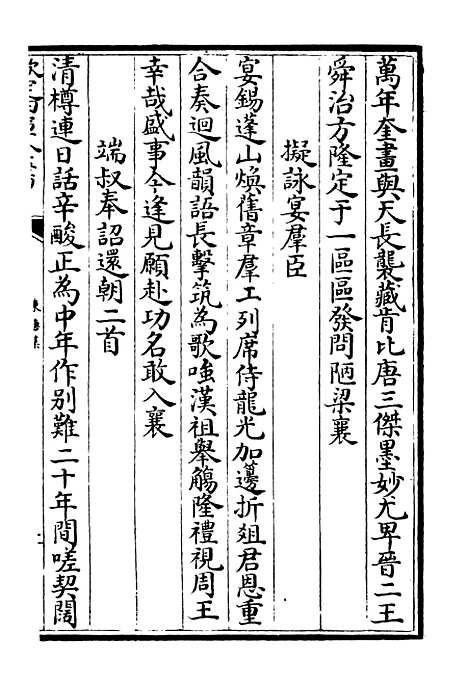 萬年奎畫與天長襲藏肯比唐三傑墨妙尤卑晉二王
舜治方隆定于一區區發問陋梁襄
擬詠宴羣臣
宴錫蓬山煥舊章羣工列席侍龍光加籩折俎君恩重
合奏迴風韻語長擊筑為歌嗤漢祖舉觴隆禮視周王
幸哉盛事今逢見願赴功名敢入襄
端叔奉詔還朝二首
清樽連日話辛酸正為中年作别難二十年間嗟契闊